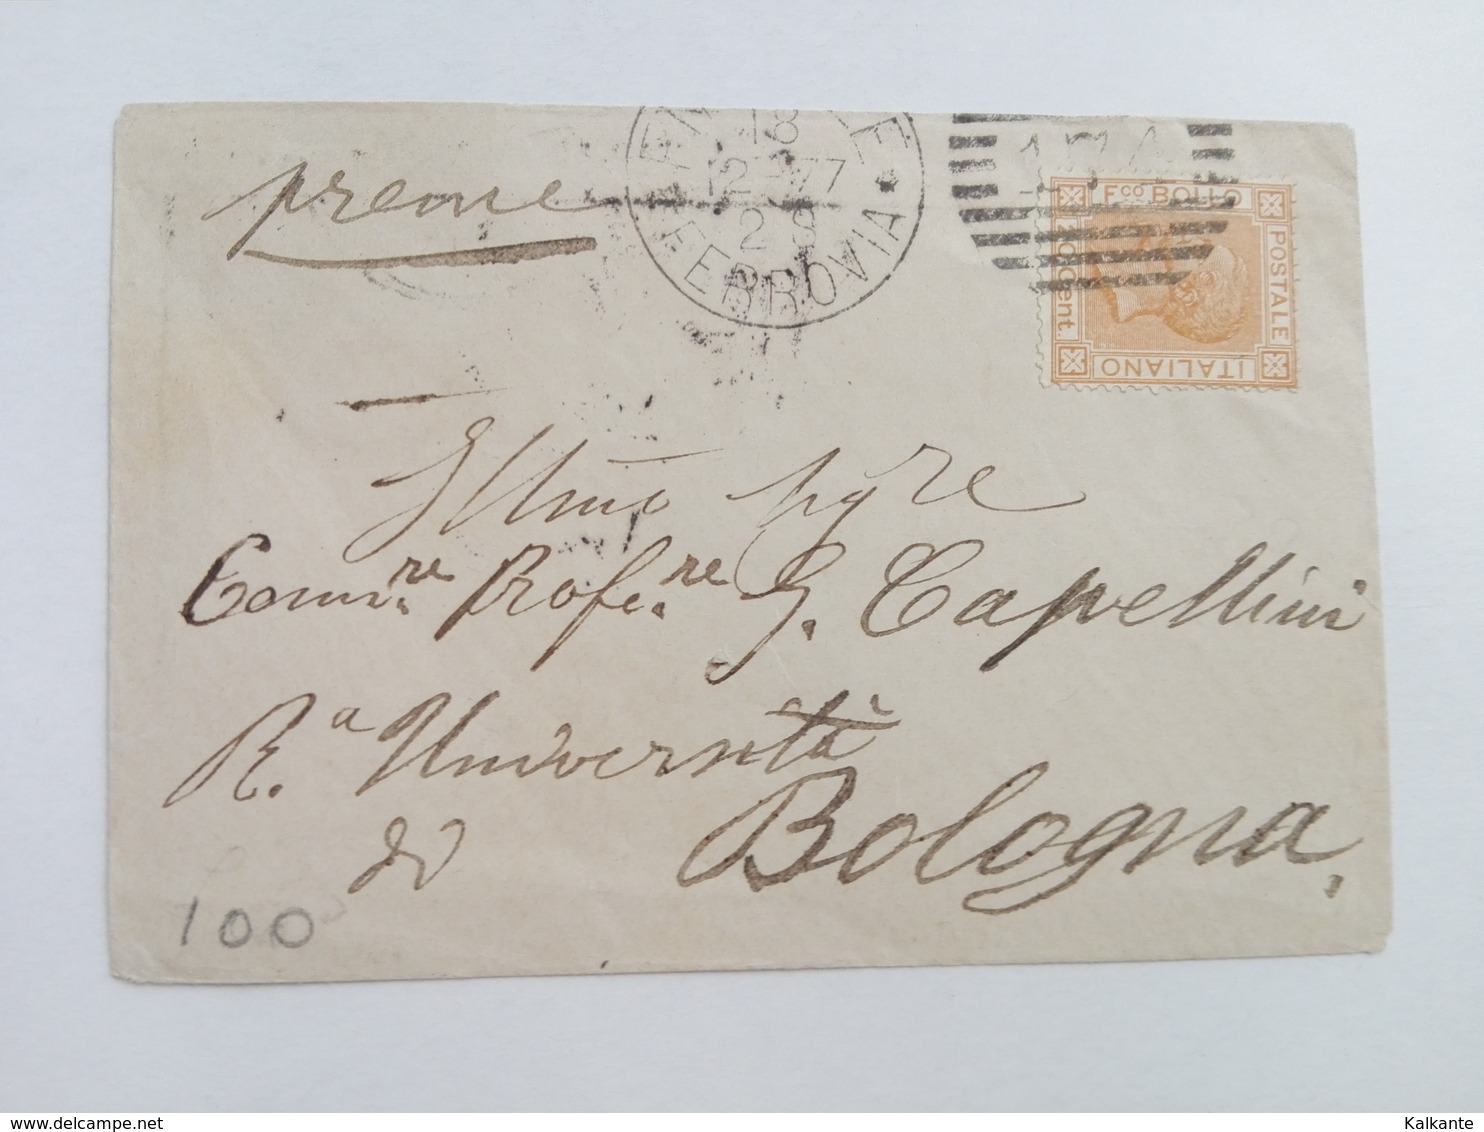 preme
18
12 - 77
FERROVIA *
174
Fco BOLLO
POSTALE
ITALIANO
Cent.
Illmo Sigre
Comre Profere G. Capellini
R.a Università
di
Bologna.
100
delcampe.net
Kalkante